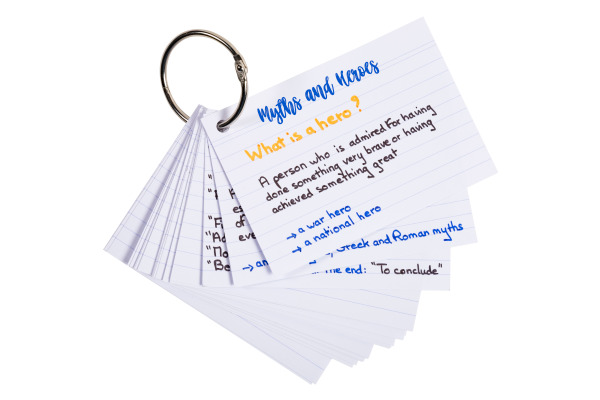 Myths and Heroes
What is a hero?
A person who is admired For having
done something very brave or having
achieved something great
→ a war hero
→ a national hero
Greek and Roman myths
end: "To conclude"